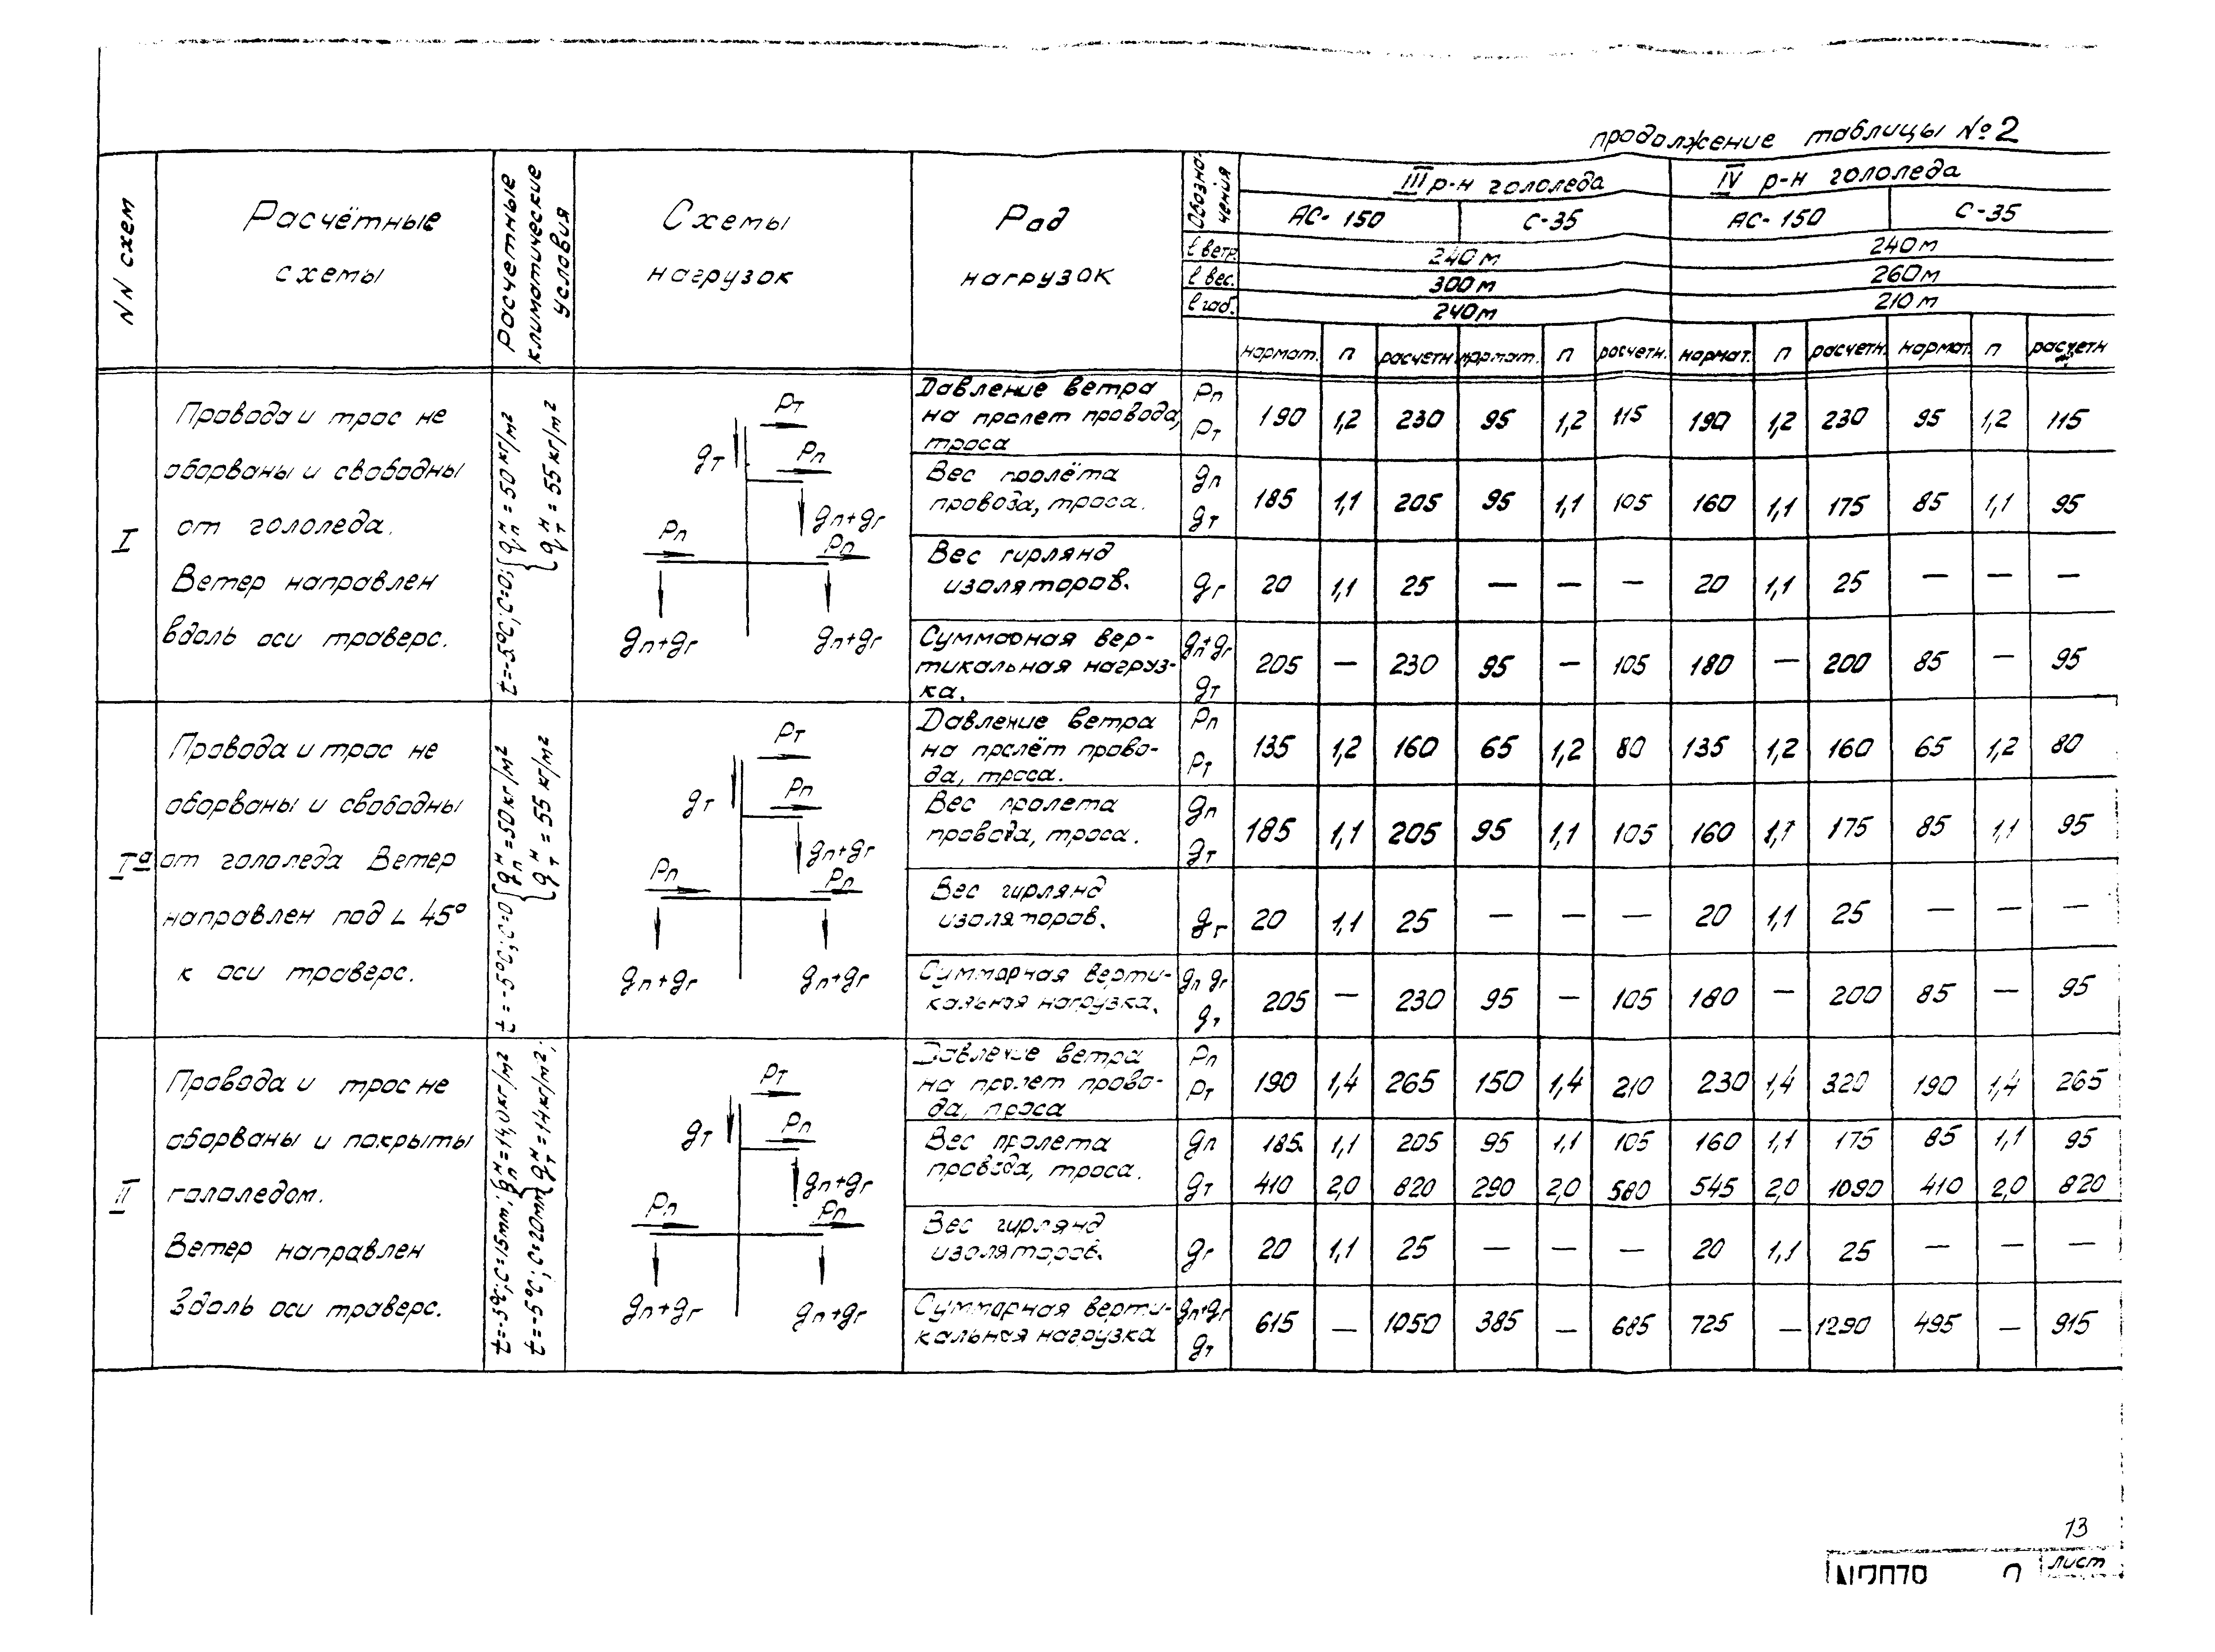 продолжение таблицы №2
NN схем
Расчётные
схемы
Расчетные
климатические
условия
Схемы
нагрузок
Род
нагрузок
Обозна-
чения
III р-н гололеда
IV р-н гололеда
АС-150
С-35
АС-150
С-35
ℓ ветр.
240м
240м
ℓ вес.
300м
260м
ℓ габ.
240м
210м
нормат. п расчетн нормат. п расчетн. нормат. п расчетн. нормат. п расчетн
I
Провода и трос не
оборваны и свободны
от гололеда.
Ветер направлен
вдоль оси траверс.
t=-5°; C=0; { q н п = 50 кг/m²
q н т = 55 кг/m²
Pт
gт
Pп
gп+gг
Pп
Pп
gп+gг
gп+gг
Давление ветра
на пролет провода,
троса
Pп
Pт
190 1,2 230 95 1,2 115 190 1,2 230 95 1,2 115
Вес пролёта
провода, троса.
gп
gт
185 1,1 205 95 1,1 105 160 1,1 175 85 1,1 95
Вес гирлянд
изоляторов.
gг
20 1,1 25 — — — 20 1,1 25 — — —
Суммарная вер-
тикальная нагруз-
ка.
gп+gг
gт
205 — 230 95 — 105 180 — 200 85 — 95
Iа
Провода и трос не
оборваны и свободны
от гололеда Ветер
направлен под ∠ 45°
к оси траверс.
t=-5°; C=0; { q н п = 50 кг/м²
q н т = 55 кг/м²
Pт
gт
Pп
gп+gг
Pп
Pп
gп+gг
gп+gг
Давление ветра
на пролёт прово-
да, троса.
Pп
Pт
135 1,2 160 65 1,2 80 135 1,2 160 65 1,2 80
Вес пролета
провода, троса.
gп
gт
185 1,1 205 95 1,1 105 160 1,1 175 85 1,1 95
Вес гирлянд
изоляторов.
gг
20 1,1 25 — — — 20 1,1 25 — — —
Суммарная верти-
кальная нагрузка.
gп gг
gт
205 — 230 95 — 105 180 — 200 85 — 95
II
Провода и трос не
оборваны и покрыты
гололедом.
Ветер направлен
вдоль оси траверс.
t=-5°; C=15mm; q н п = 14,0кг/м²
t=-5°; C=20mm q н т = 14кг/м²;
Pт
gт
Pп
gп+gг
Pп
Pп
gп+gг
gп+gг
Давление ветра
на пролет прово-
да, троса
Pп
Pт
190 1,4 265 150 1,4 210 230 1,4 320 190 1,4 265
Вес пролета
провода, троса.
gп
185. 1,1 205 95 1,1 105 160 1,1 175 85 1,1 95
gт
410 2,0 820 290 2,0 580 545 2,0 1090 410 2,0 820
Вес гирлянд
изоляторов.
gг
20 1,1 25 — — — 20 1,1 25 — — —
Суммарная верти-
кальная нагрузка
gп+gг
gт
615 — 1050 385 — 685 725 — 1290 495 — 915
13
лист